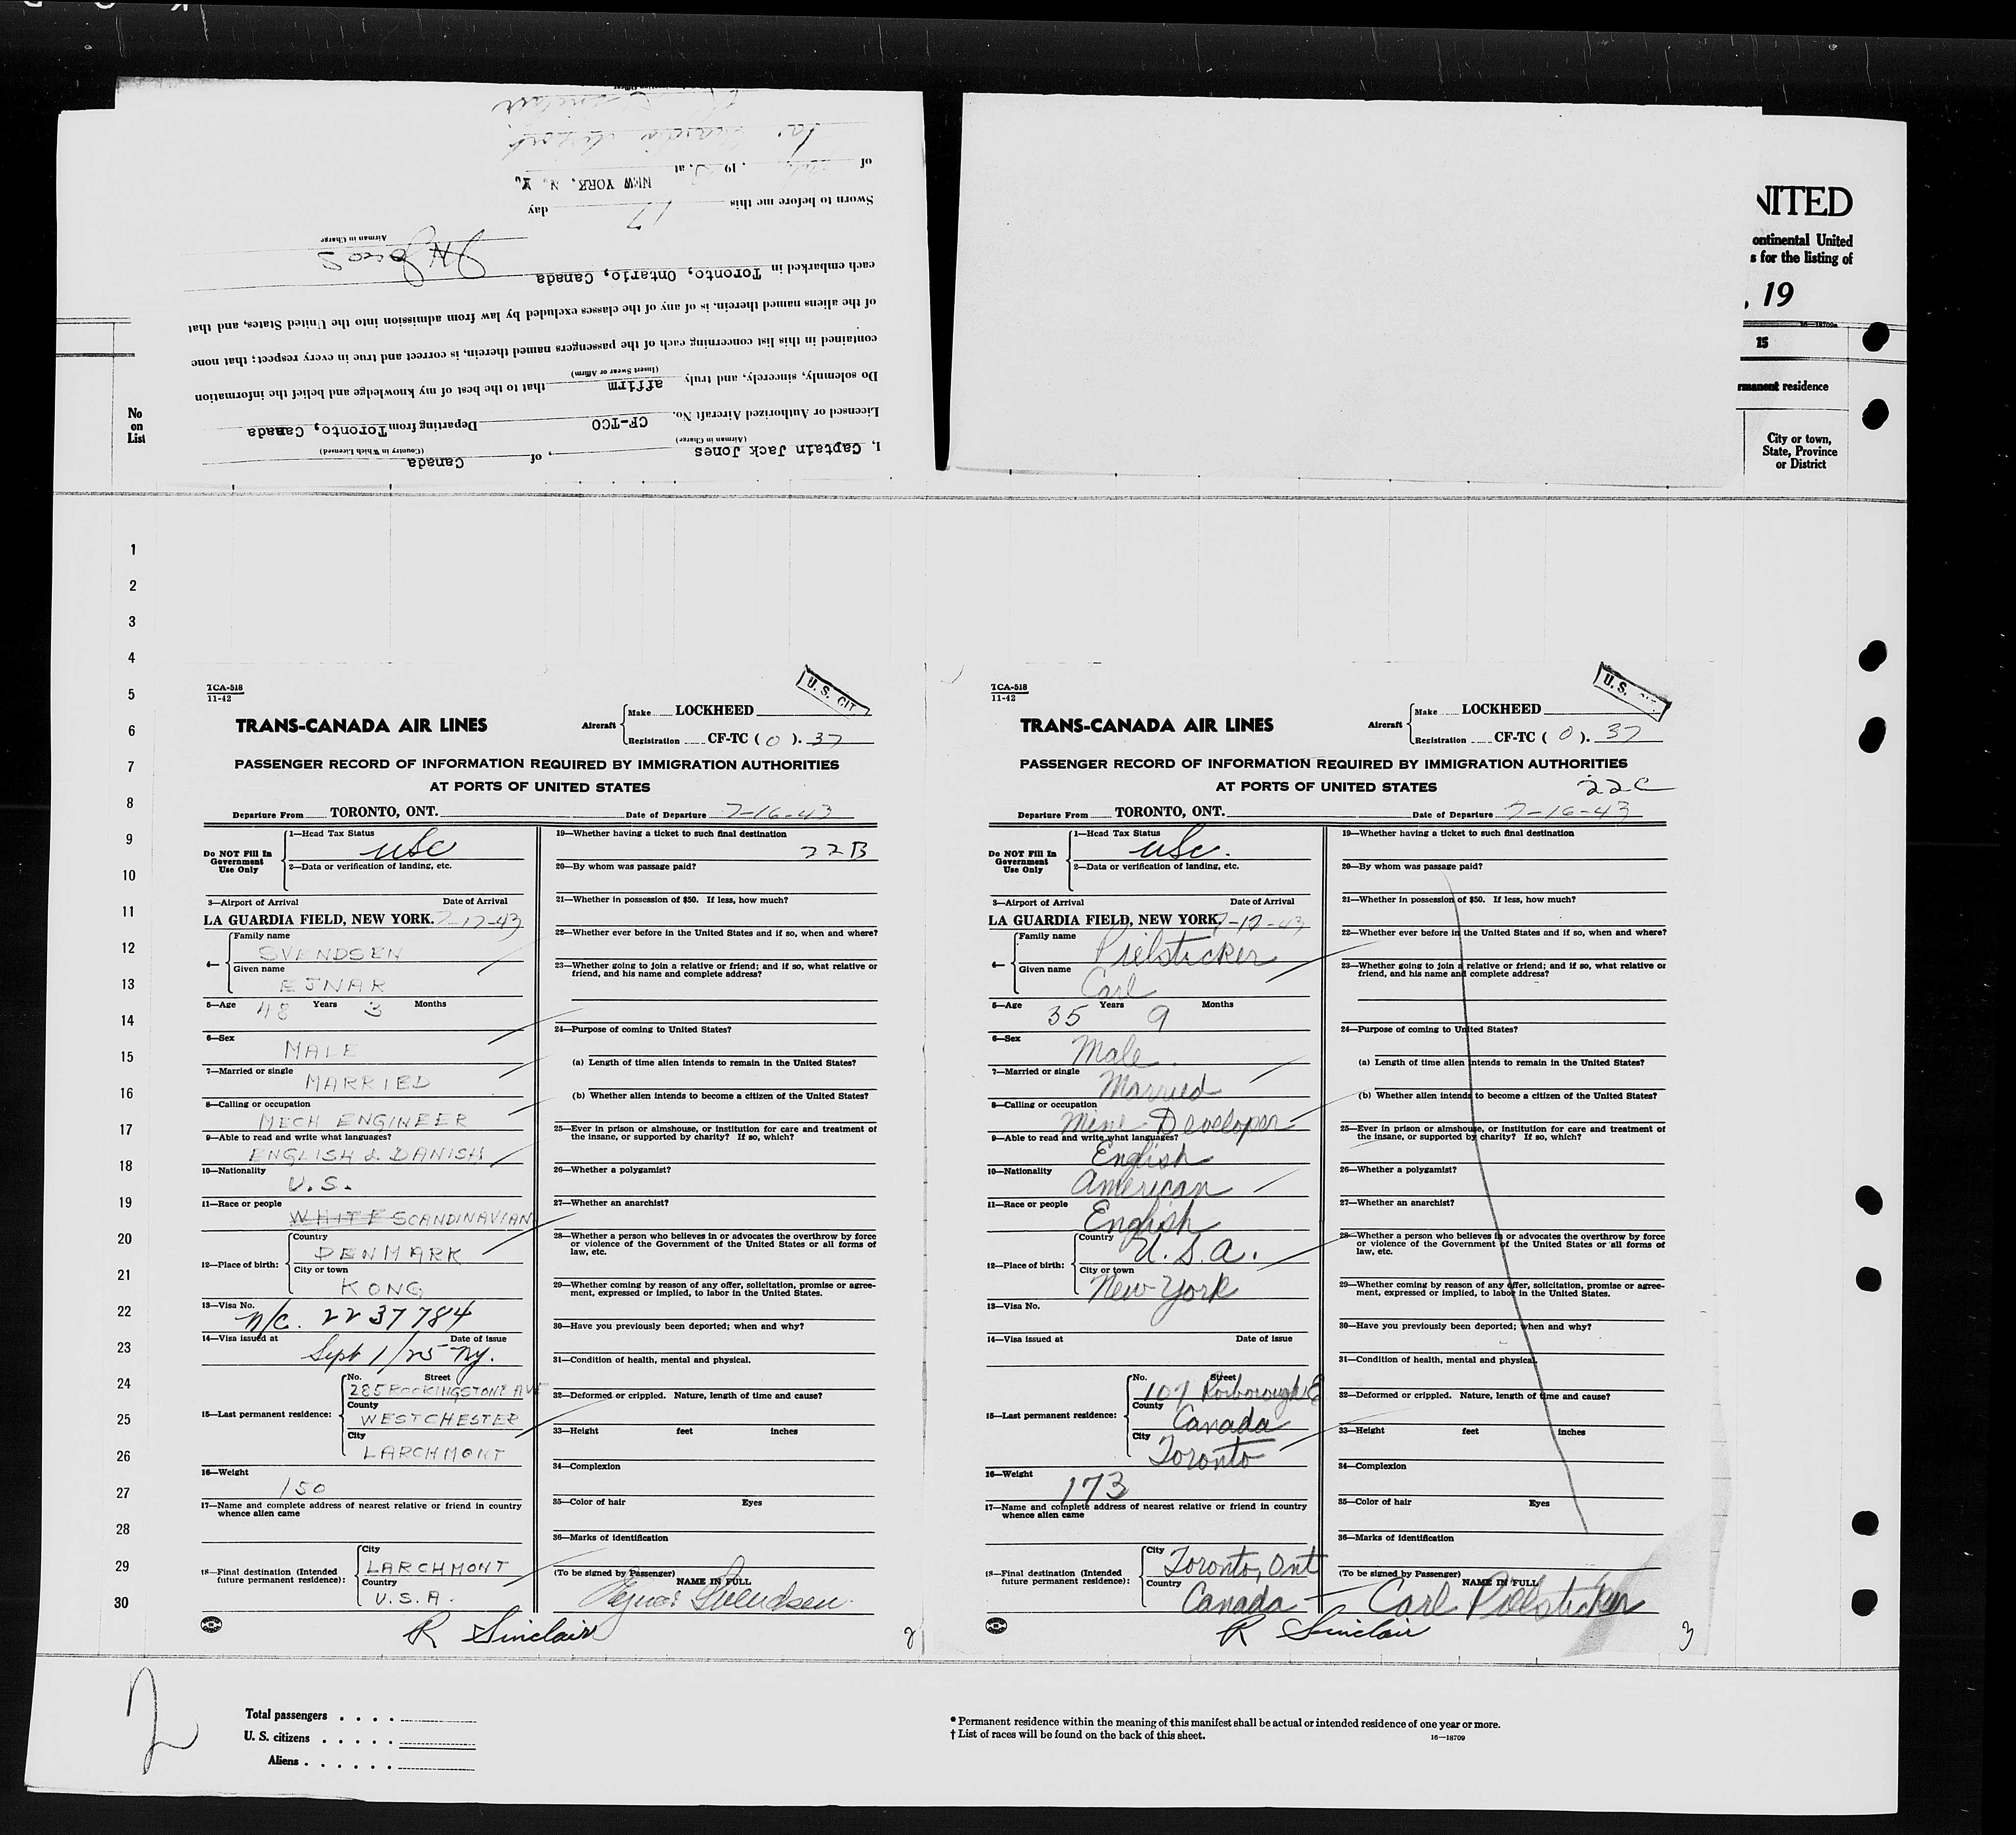 I, Captain Jack Jones, of Canada
(Airman in Charge) (Country in Which Licensed)
Licensed or Authorized Aircraft No. CF-TCO Departing from Toronto, Canada
Do solemnly, sincerely, and truly affirm that to the best of my knowledge and belief the information
(Insert Swear or Affirm)
contained in this list concerning each of the passengers named therein, is correct and true in every respect; that none
of the aliens named therein, is of any of the classes excluded by law from admission into the United States, and that
each embarked in Toronto, Ontario, Canada
Airman in Charge
Sworn to before me this 17 day
NEW YORK, N. Y.
of , 19 , at
NITED
ontinental United
s for the listing of
, 19
16—18709a
15
rmanent residence
City or town,
State, Province
or District
No
on
List
1
2
3
4
5
6
7
8
9
10
11
12
13
14
15
16
17
18
19
20
21
22
23
24
25
26
27
28
29
30
TCA-518
11-42
U. S. CIT
TRANS-CANADA AIR LINES
Aircraft
Make LOCKHEED
Registration CF-TC ( O ). 37
PASSENGER RECORD OF INFORMATION REQUIRED BY IMMIGRATION AUTHORITIES
AT PORTS OF UNITED STATES
Departure From TORONTO, ONT. Date of Departure 7-16-43
Do NOT Fill In
Government
Use Only
1—Head Tax Status
USC
2—Data or verification of landing, etc.
3—Airport of Arrival Date of Arrival
LA GUARDIA FIELD, NEW YORK. 7-17-43
4—
Family name
SVENDSEN
Given name
EJNAR
5—Age 48 Years 3 Months
6—Sex
MALE
7—Married or single
MARRIED
8—Calling or occupation
MECH ENGINEER
9—Able to read and write what languages?
ENGLISH & DANISH
10—Nationality
U.S.
11—Race or people
WHITE SCANDINAVIAN
12—Place of birth:
Country
DENMARK
City or town
KONG
13—Visa No.
N/C. 2237784
14—Visa issued at Date of issue
Sept 1/25 Ny.
15—Last permanent residence:
No. Street
285 ROCKINGSTONE AVE
County
WESTCHESTER
City
LARCHMONT
16—Weight
150
17—Name and complete address of nearest relative or friend in country
whence alien came
18—Final destination (Intended
future permanent residence):
City
LARCHMONT
Country
U.S.A.
19—Whether having a ticket to such final destination
22B
20—By whom was passage paid?
21—Whether in possession of $50. If less, how much?
22—Whether ever before in the United States and if so, when and where?
23—Whether going to join a relative or friend; and if so, what relative or
friend, and his name and complete address?
24—Purpose of coming to United States?
(a) Length of time alien intends to remain in the United States?
(b) Whether alien intends to become a citizen of the United States?
25—Ever in prison or almshouse, or institution for care and treatment of
the insane, or supported by charity? If so, which?
26—Whether a polygamist?
27—Whether an anarchist?
28—Whether a person who believes in or advocates the overthrow by force
or violence of the Government of the United States or all forms of
law, etc.
29—Whether coming by reason of any offer, solicitation, promise or agree-
ment, expressed or implied, to labor in the United States.
30—Have you previously been deported; when and why?
31—Condition of health, mental and physical.
32—Deformed or crippled. Nature, length of time and cause?
33—Height feet inches
34—Complexion
35—Color of hair Eyes
36—Marks of identification
(To be signed by Passenger)
NAME IN FULL
Ejnar Svendsen
R Sinclair
2
TCA-518
11-42
U. S.
TRANS-CANADA AIR LINES
Aircraft
Make LOCKHEED
Registration CF-TC ( O ). 37
PASSENGER RECORD OF INFORMATION REQUIRED BY IMMIGRATION AUTHORITIES
AT PORTS OF UNITED STATES
22C
Departure From TORONTO, ONT. Date of Departure 7-16-43
Do NOT Fill In
Government
Use Only
1—Head Tax Status
USC.
2—Data or verification of landing, etc.
3—Airport of Arrival Date of Arrival
LA GUARDIA FIELD, NEW YORK. 7-17-43
4—
Family name
Pielsticker
Given name
Carl
5—Age 35 Years 9 Months
6—Sex
Male
7—Married or single
Married
8—Calling or occupation
Mine Developer
9—Able to read and write what languages?
English
10—Nationality
American
11—Race or people
English
12—Place of birth:
Country
U.S.A.
City or town
New York
13—Visa No.
14—Visa issued at Date of issue
15—Last permanent residence:
No. Street
107 Roxborough E
County
Canada
City
Toronto
16—Weight
173
17—Name and complete address of nearest relative or friend in country
whence alien came
18—Final destination (Intended
future permanent residence):
City
Toronto, Ont
Country
Canada
19—Whether having a ticket to such final destination
20—By whom was passage paid?
21—Whether in possession of $50. If less, how much?
22—Whether ever before in the United States and if so, when and where?
23—Whether going to join a relative or friend; and if so, what relative or
friend, and his name and complete address?
24—Purpose of coming to United States?
(a) Length of time alien intends to remain in the United States?
(b) Whether alien intends to become a citizen of the United States?
25—Ever in prison or almshouse, or institution for care and treatment of
the insane, or supported by charity? If so, which?
26—Whether a polygamist?
27—Whether an anarchist?
28—Whether a person who believes in or advocates the overthrow by force
or violence of the Government of the United States or all forms of
law, etc.
29—Whether coming by reason of any offer, solicitation, promise or agree-
ment, expressed or implied, to labor in the United States.
30—Have you previously been deported; when and why?
31—Condition of health, mental and physical.
32—Deformed or crippled. Nature, length of time and cause?
33—Height feet inches
34—Complexion
35—Color of hair Eyes
36—Marks of identification
(To be signed by Passenger)
NAME IN FULL
Carl Pielsticker
R Sinclair
3
2
Total passengers
U. S. citizens
Aliens
* Permanent residence within the meaning of this manifest shall be actual or intended residence of one year or more.
† List of races will be found on the back of this sheet.
16—18709